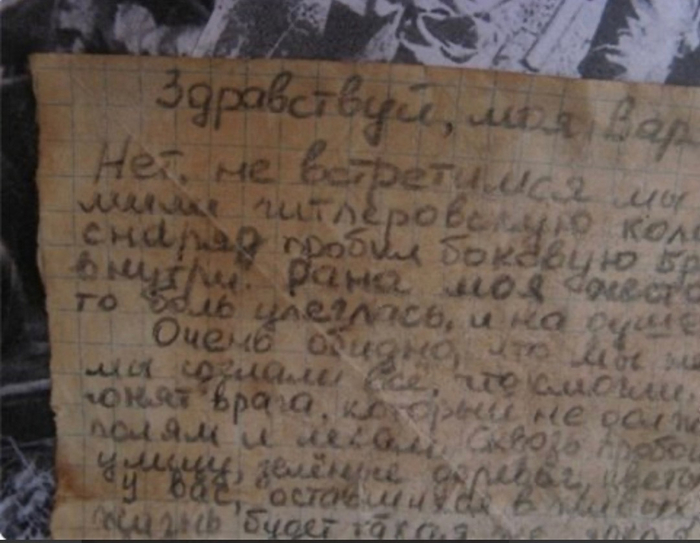 Здравствуй, моя Вар
Нет, не встретимся мы
мили гитлеровскую кол
снаряд пробил боковую бр
внутри. Рана моя жест
то боль улеглась, и на душе
Очень обидно, что мы не
мы сделали все, что смогли.
гонят врага, который не долж
полям и лесам. Сквозь пробо
улицу, зелёные деревья, цветы
У вас, оставшихся в живых
жизнь будет такая же